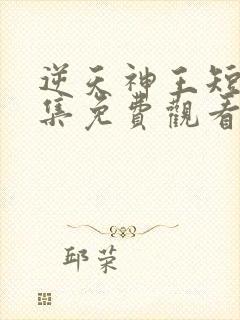 逆天神王短
集免費觀看
邱荣